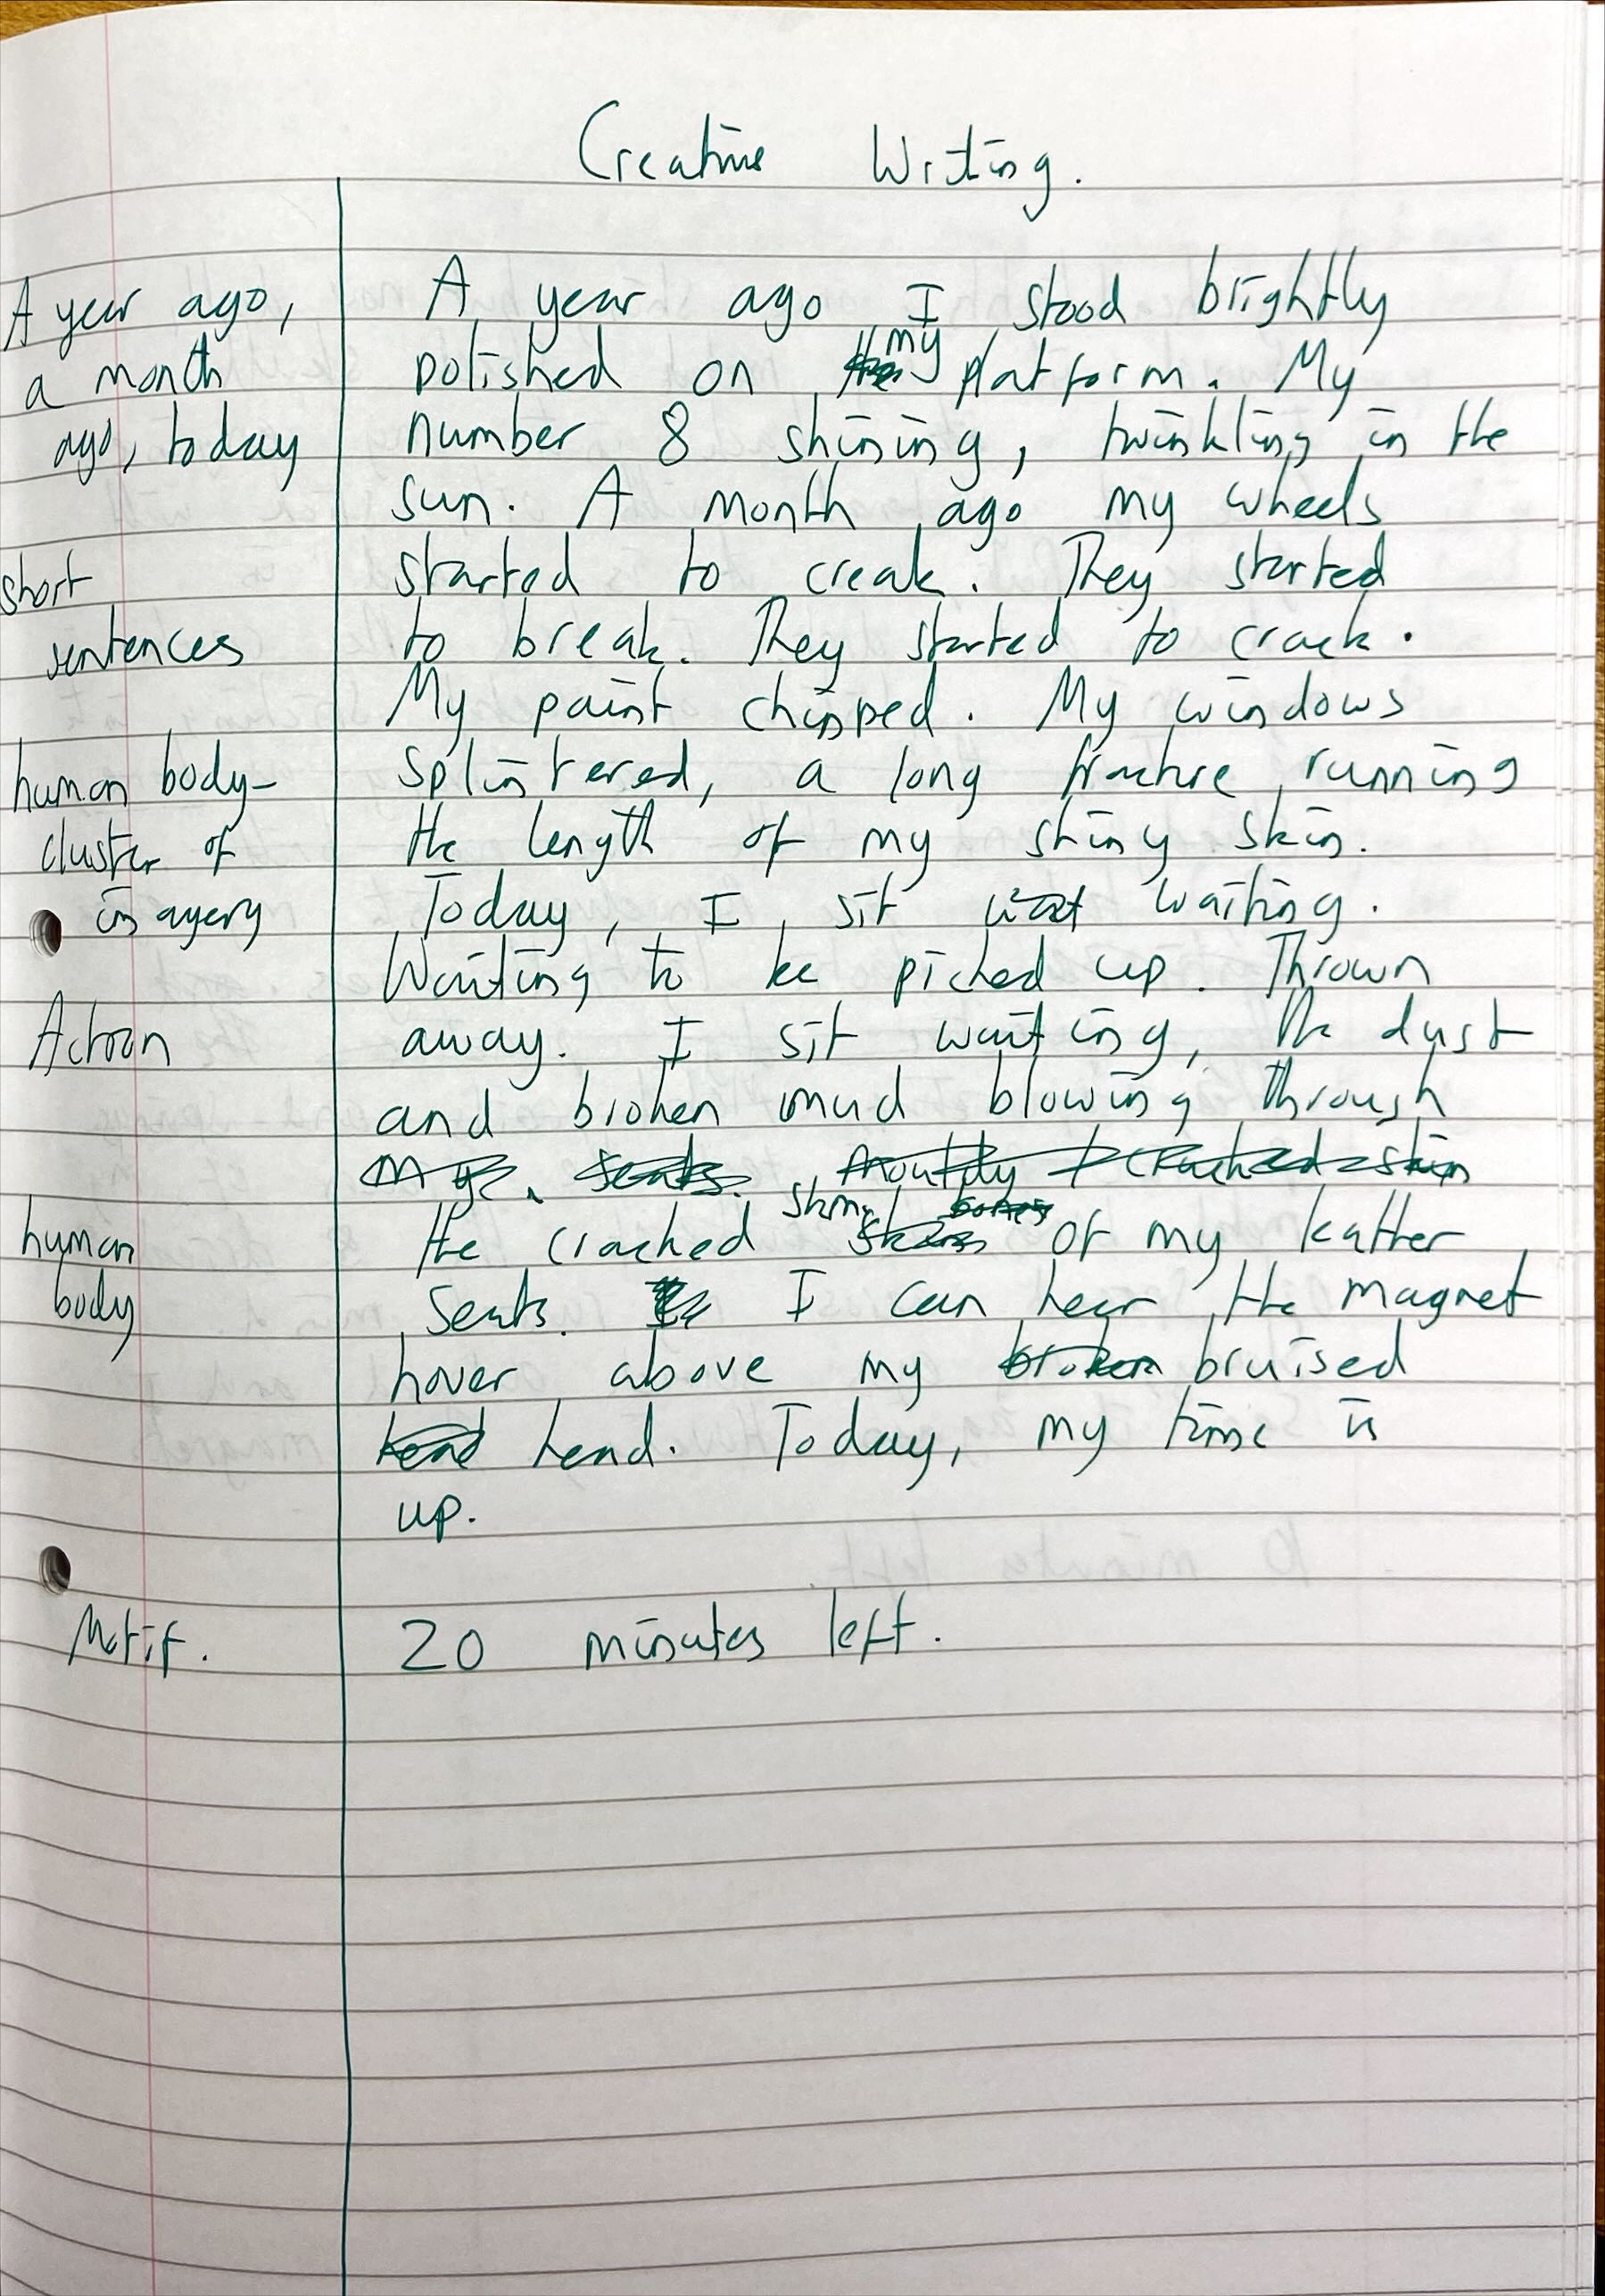 Creative Writing.
A year ago,
a month
ago, today
short
sentences
human body -
cluster of
imagery
Action
human
body
Motif.
A year ago I stood brightly
polished on the my platform. My
number 8 shining, twinkling in the
sun. A month ago my wheels
started to creak. They started
to break. They started to crack.
My paint chipped. My windows
splintered, a long fracture running
the length of my shiny skin.
Today, I sit wait waiting.
Waiting to be picked up. Thrown
away. I sit waiting, the dust
and broken mud blowing through
my seats. cracked skin
the cracked skin bones of my leather
seats. I can hear the magnet
hover above my broken bruised
head head. Today, my time is
up.
20 minutes left.